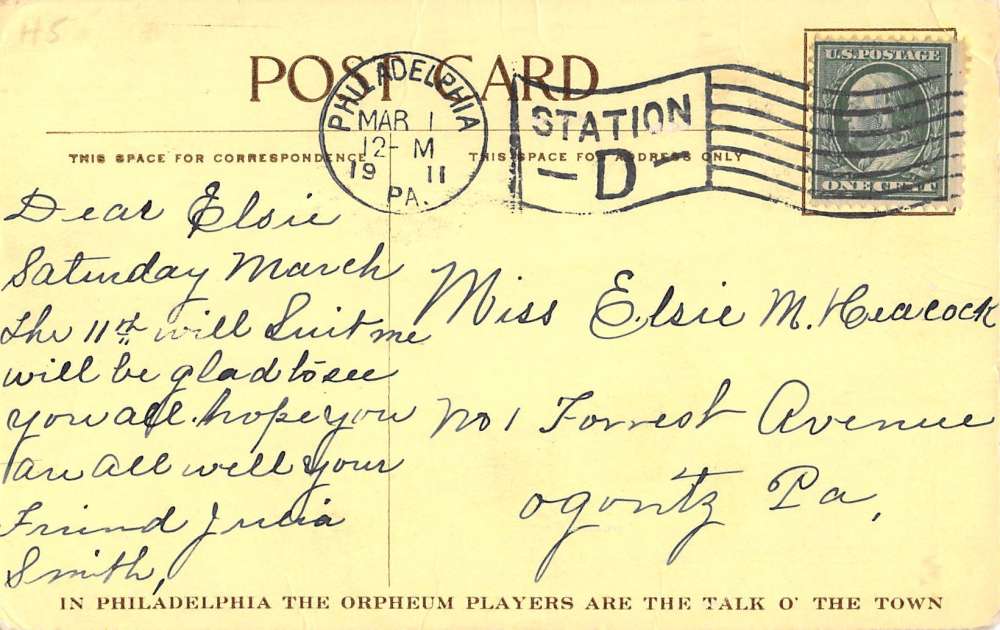 H5
POST CARD
PHILADELPHIA
MAR 1
12- M
19 11
PA.
STATION
- D -
U.S. POSTAGE
ONE CENT
THIS SPACE FOR CORRESPONDENCE
THIS SPACE FOR ADDRESS ONLY
Dear Elsie
Saturday March
the 11th will Suit me
will be glad to see
you all. hope you
are all well your
Friend Julia
Smith,
Miss Elsie M. Heacock
No 1 Forrest Avenue
Ogontz Pa,
IN PHILADELPHIA THE ORPHEUM PLAYERS ARE THE TALK O' THE TOWN